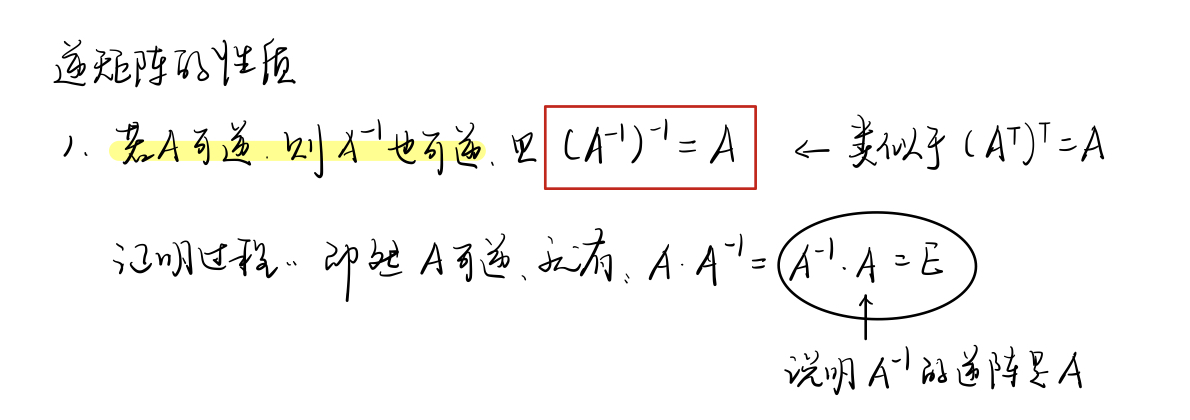 逆矩阵的性质
1. 若A可逆,则A⁻¹也可逆,且 (A⁻¹)⁻¹ = A ← 类似于 (Aᵀ)ᵀ = A
证明过程: 即然A可逆,就有: A · A⁻¹ = A⁻¹ · A = E
↑
说明A⁻¹的逆阵是A